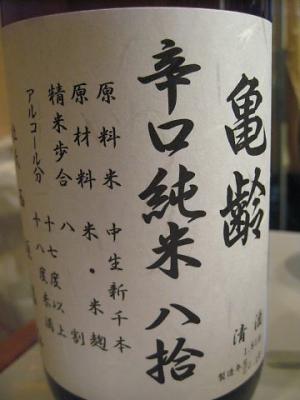 亀齢
辛口純米 八拾
原料米 中生新千本
原材料 米・米麹
精米歩合 八割
アルコール分 十七度以上
十八度未満
清酒